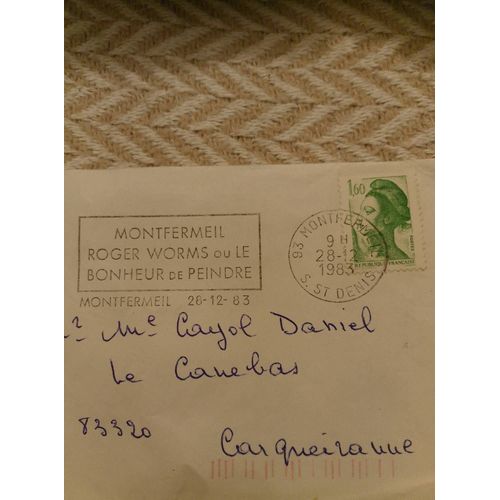 MONTFERMEIL
ROGER WORMS OU LE
BONHEUR DE PEINDRE
MONTFERMEIL 28-12-83
93 MONTFERMEIL
9 H
28-12
1983
S. ST DENIS
1,60
REPUBLIQUE FRANÇAISE
Mr Me Cayol Daniel
Le Canebas
83320
Carqueiranne